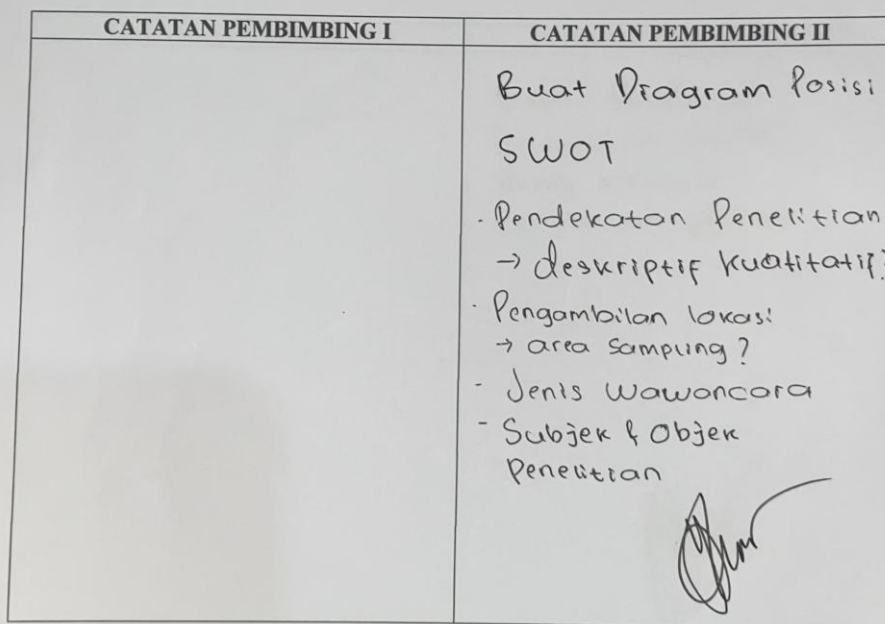 CATATAN PEMBIMBING I
CATATAN PEMBIMBING II
Buat Diagram Posisi
SWOT
- Pendekatan Penelitian
→ deskriptif kualitatif?
- Pengambilan lokasi
→ area sampling?
- Jenis Wawancara
- Subjek & Objek
Penelitian